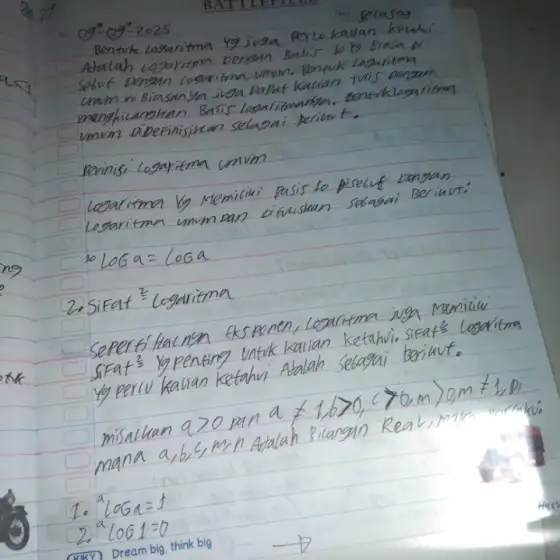 BATTLEFIELD
Selasa
09-09-2025
Bentuk Logaritma Yg juga Perlu kalian ketahui
Adalah Logaritma Dengan Basis 10 Yg Biasa Di
Sebut Dengan Logaritma umum. Bentuk Logaritma
umum ni Biasanya juga Dapat kalian tulis Dengan
menghilangkan Basis Logaritmanya. Bentuk logaritma
umum Didefinisikan sebagai berikut.
Definisi Logaritma umum
Logaritma Yg Memiliki Basis 10 Disebut Dengan
Logaritma umum Dan Dituliskan Sebagai Berikut:
¹⁰ LOG a = LOG a
2. Sifat² Logaritma
Seperti Halnya Eksponen, Logaritma Juga Memiliki
Sifat² Yg Penting Untuk Kalian Ketahui. Sifat² Logaritma
Yg perlu Kalian Ketahui Adalah Sebagai Berikut.
misalkan a>0 Dan a ≠ 1, b>0, c>0, m>0, m ≠ 1, Di
mana a, b, c, m, n Adalah Bilangan Real, maka
1. ᵃLOG a = 1
2. ᵃLOG 1 = 0
KIKY Dream big, think big